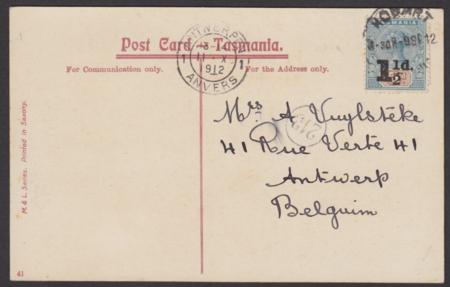 Post Card - Tasmania.
For Communication only.
For the Address only.
ANTWERPEN
1 1
11 X
1912
ANVERS
HOBART
TASMANIA
1½d.
212
Mrs A Vuylsteke
41 Rue Verte 41
Antwerp
Belguim
M. & L. Series. Printed in Saxony.
41